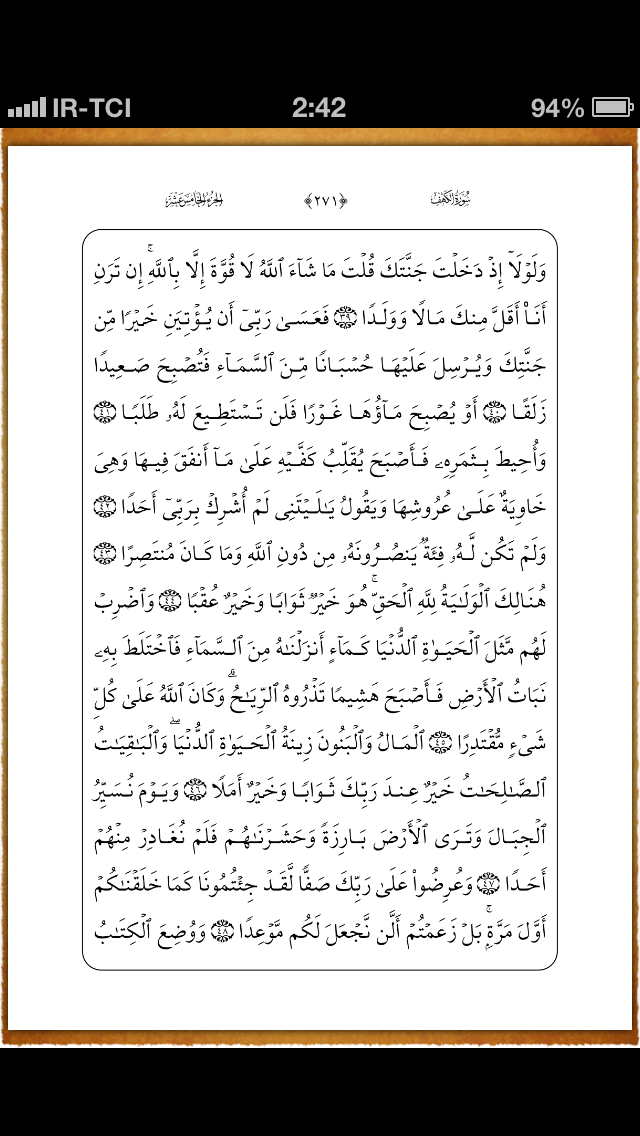 IR-TCI 2:42 94%
سُورَةُ الكَهْفِ ﴿٢٧١﴾ الجُزْءُ الخَامِسَ عَشَرَ
وَلَوْلَآ إِذْ دَخَلْتَ جَنَّتَكَ قُلْتَ مَا شَآءَ ٱللَّهُ لَا قُوَّةَ إِلَّا بِٱللَّهِ ۚ إِن تَرَنِ
أَنَا۠ أَقَلَّ مِنكَ مَالًا وَوَلَدًا ﴿٣٩﴾ فَعَسَىٰ رَبِّىٓ أَن يُؤْتِيَنِ خَيْرًا مِّن
جَنَّتِكَ وَيُرْسِلَ عَلَيْهَا حُسْبَانًا مِّنَ ٱلسَّمَآءِ فَتُصْبِحَ صَعِيدًا
زَلَقًا ﴿٤٠﴾ أَوْ يُصْبِحَ مَآؤُهَا غَوْرًا فَلَن تَسْتَطِيعَ لَهُۥ طَلَبًا ﴿٤١﴾
وَأُحِيطَ بِثَمَرِهِۦ فَأَصْبَحَ يُقَلِّبُ كَفَّيْهِ عَلَىٰ مَآ أَنفَقَ فِيهَا وَهِىَ
خَاوِيَةٌ عَلَىٰ عُرُوشِهَا وَيَقُولُ يَـٰلَيْتَنِى لَمْ أُشْرِكْ بِرَبِّىٓ أَحَدًا ﴿٤٢﴾
وَلَمْ تَكُن لَّهُۥ فِئَةٌ يَنصُرُونَهُۥ مِن دُونِ ٱللَّهِ وَمَا كَانَ مُنتَصِرًا ﴿٤٣﴾
هُنَالِكَ ٱلْوَلَـٰيَةُ لِلَّهِ ٱلْحَقِّ ۚ هُوَ خَيْرٌ ثَوَابًا وَخَيْرٌ عُقْبًا ﴿٤٤﴾ وَٱضْرِبْ
لَهُم مَّثَلَ ٱلْحَيَوٰةِ ٱلدُّنْيَا كَمَآءٍ أَنزَلْنَـٰهُ مِنَ ٱلسَّمَآءِ فَٱخْتَلَطَ بِهِۦ
نَبَاتُ ٱلْأَرْضِ فَأَصْبَحَ هَشِيمًا تَذْرُوهُ ٱلرِّيَـٰحُ ۗ وَكَانَ ٱللَّهُ عَلَىٰ كُلِّ
شَىْءٍ مُّقْتَدِرًا ﴿٤٥﴾ ٱلْمَالُ وَٱلْبَنُونَ زِينَةُ ٱلْحَيَوٰةِ ٱلدُّنْيَا ۖ وَٱلْبَـٰقِيَـٰتُ
ٱلصَّـٰلِحَـٰتُ خَيْرٌ عِندَ رَبِّكَ ثَوَابًا وَخَيْرٌ أَمَلًا ﴿٤٦﴾ وَيَوْمَ نُسَيِّرُ
ٱلْجِبَالَ وَتَرَى ٱلْأَرْضَ بَارِزَةً وَحَشَرْنَـٰهُمْ فَلَمْ نُغَادِرْ مِنْهُمْ
أَحَدًا ﴿٤٧﴾ وَعُرِضُوا۟ عَلَىٰ رَبِّكَ صَفًّا لَّقَدْ جِئْتُمُونَا كَمَا خَلَقْنَـٰكُمْ
أَوَّلَ مَرَّةٍۭ ۚ بَلْ زَعَمْتُمْ أَلَّن نَّجْعَلَ لَكُم مَّوْعِدًا ﴿٤٨﴾ وَوُضِعَ ٱلْكِتَـٰبُ